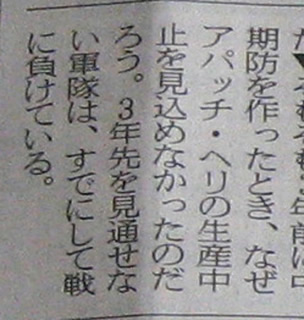 年前に中
期防を作ったとき、なぜ
アパッチ・ヘリの生産中
止を見込めなかったのだ
ろう。3年先を見通せな
い軍隊は、すでにして戦
に負けている。